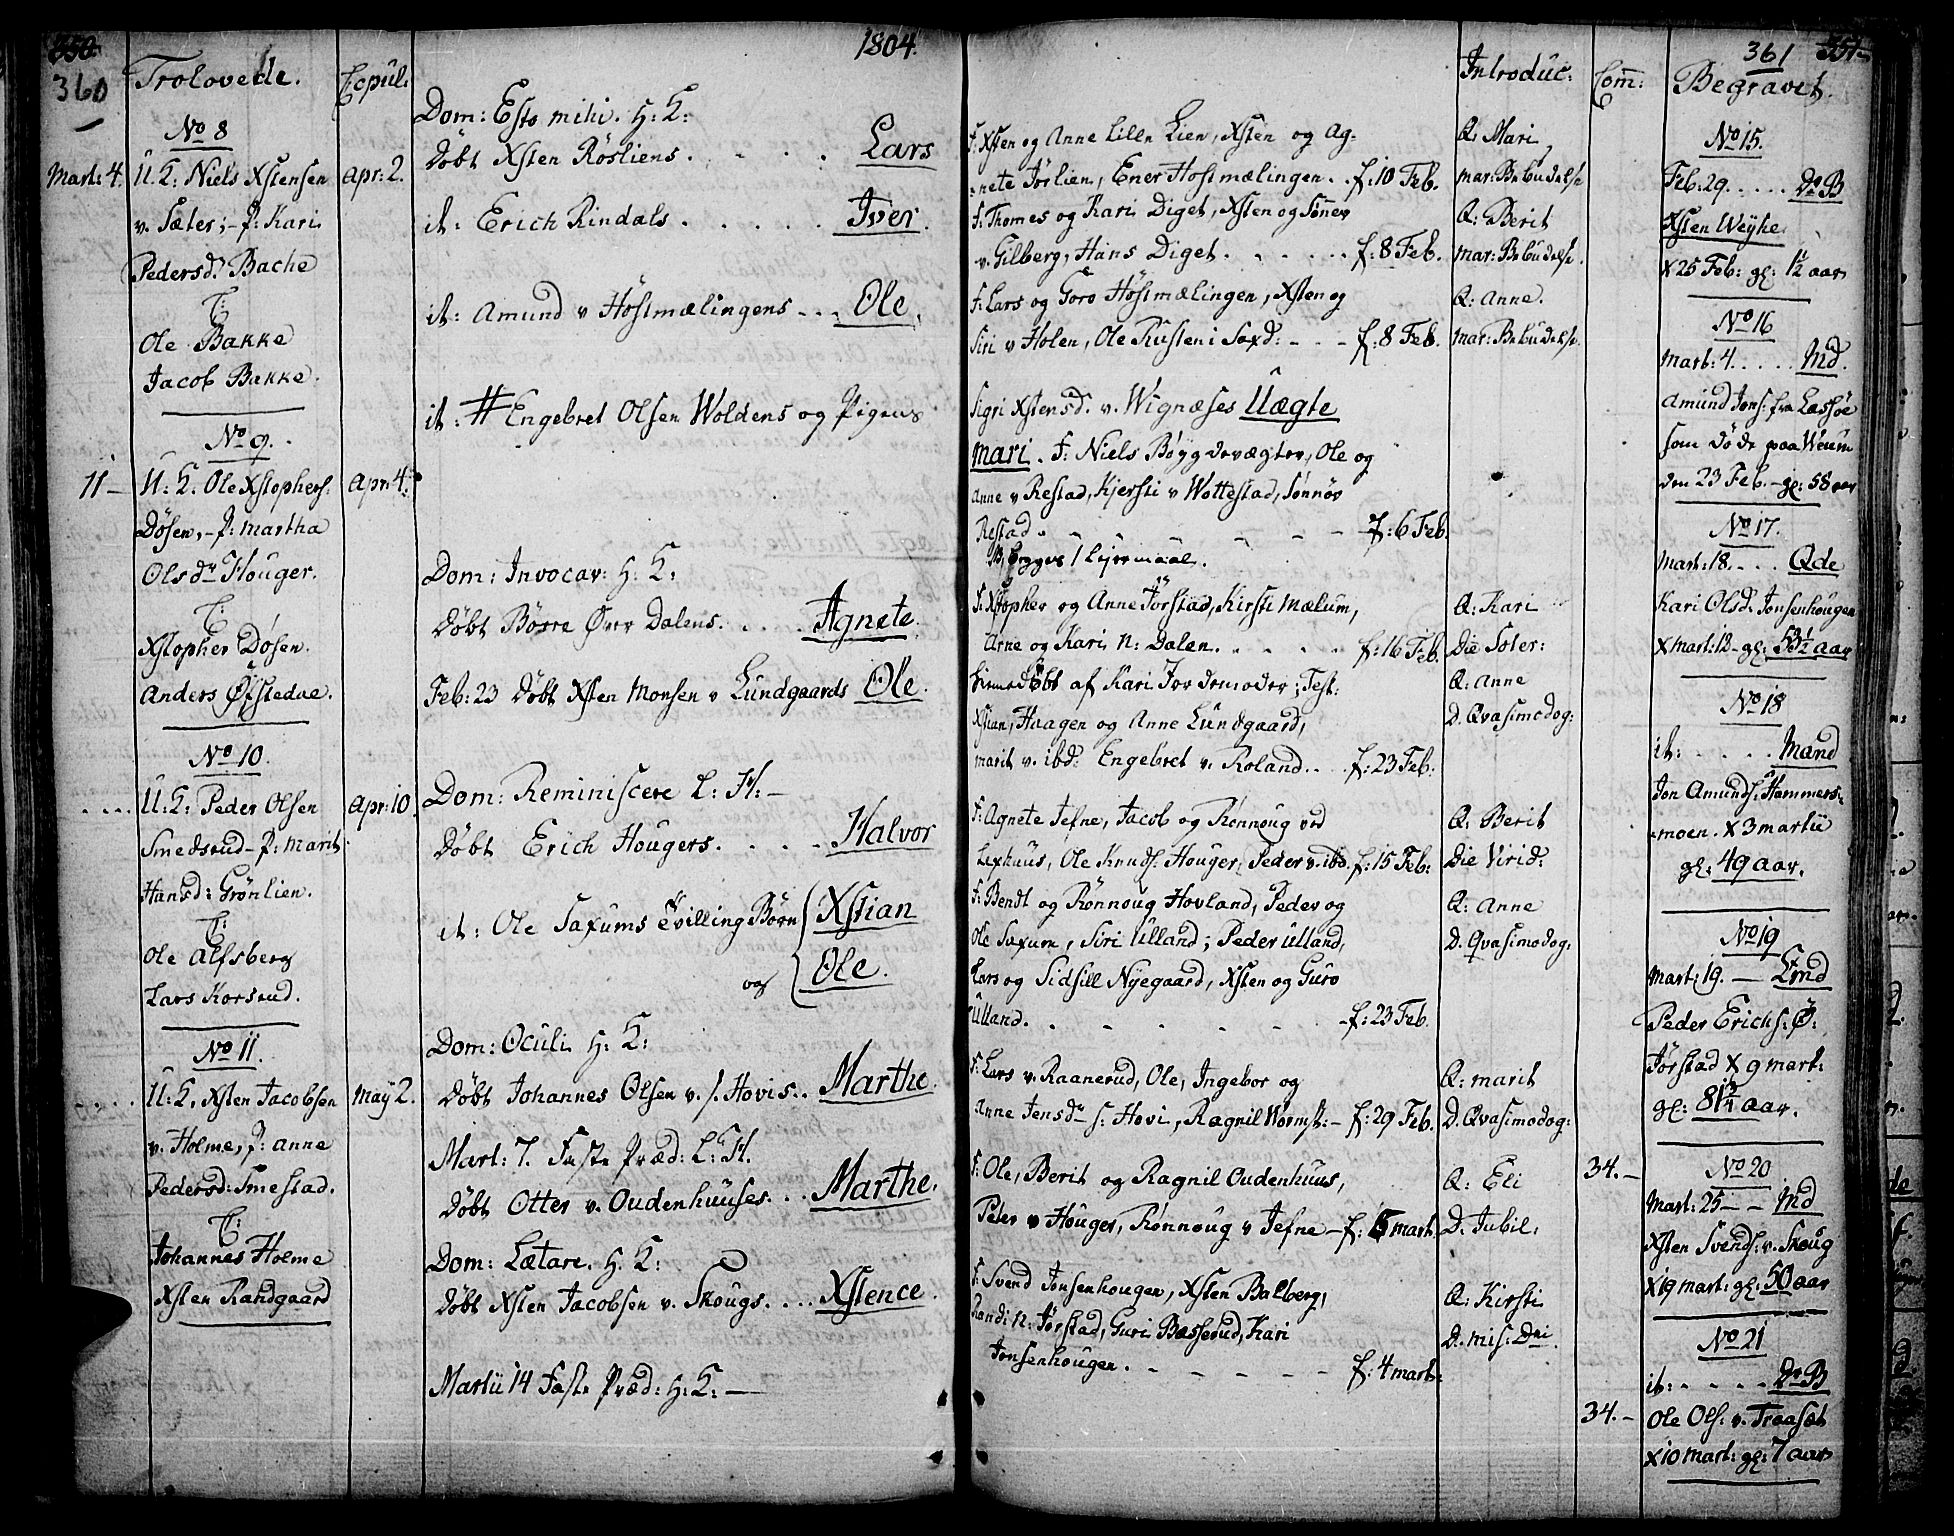 350
360
1804.
361
351
Trolovede.
Copul:
No 8
Mart: 4.
U. K: Niels Xstensen
apr: 2.
v. Sæter; - P: Kari
Pedersd. Bache
C:
Ole Bakke
Jacob Bakke.
No 9.
11 -
U: K. Ole Xstophers:
apr: 4.
Døsen, - P: Martha
Olsdr Houger.
C:
Xstopher Døsen.
Anders Øfstedae.
No 10.
U: K: Peder Olsen
apr: 10.
Smedsrud - P: Marit
Hansd: Grønlien.
C:
Ole Alfsberg
Lars Korsrud.
No 11.
U: K, Xsten Jacobsen
may 2.
v. Holme, P: anne
Pedersd: Smestad.
C:
Johannes Holme
Xsten Randgaard
Dom: Esto mihi. H: K:
Døbt Xsten Røsliens . - . . Lars
it: Erich Rindals . . . . . Iver.
it: Amund v Høstmælingens - . . Ole.
it: # Engebret Olsen Woldens og Pigens
Dom: Invocav: H: K:
Døbt Børre Øvr Dalens. . . . . Agnete.
Feb: 23 Døbt Xsten Monsen v Lundgaards Ole.
Dom: Reminiscere L: H: -
Døbt Erich Hougers. . . . - Halvor
it: Ole Saxums Tvilling Børn Xstian
og Ole.
Dom: Oculi H: K:
Døbt Johannes Olsen v. s. Hovis. . Marthe.
Mart: 7. Faste Præd: L: H.
Døbt Otter v. Oudenhuuses. . . Marthe.
Dom: Lætare. H: K:
Døbt Xsten Jacobsen v. Skougs. . . . Xstence.
Martii 14 Faste Præd: H: K: -
Introduc:
Com:
Begravet.
F: Xsten og Anne Lille Lien, Xsten og Ag-
nete Jørlien, Ener Høstmælingen . . f: 10 Feb.
F: Thomes og Kari Diget, Xsten og Sønnev
v. Gilberg, Hans Diget . . . . . . f: 8 Feb.
F: Lars og Goro Høstmælingen, Xsten og
Siri v Holen, Ole Rusten i Saxd: - - - f: 8 Feb.
Sigri Xstensd. v. Wignæses Uægte
Mari. F: Niels Bøygdevægter, Ole og
Anne v Restad, Kjersti v Wottestad, Sønnøv
Restad. - - - - - f: 6 Feb.
Begges 1 Lejermaal.
F: Xstopher og Anne Jørstad, Kirsti Mælum,
Arne og Kari N: Dalen. . . . . f: 16 Feb.
Hiemedøbt af Kari Jordemoder; Test:
Xstian, Haagen og Anne Lundgaard,
Marit v. ibd: Engebret v. Roland. . . f: 23 Feb:
F: Agnete Jefne, Jacob og Rønnoug
Lixhuus, Ole Knuds: Houger, Peder v. ibd. f: 15 Feb:
F: Bendt og Rønnoug Hovland, Peder og
Ole Saxum, Siri Ulland; Peder Ulland,
Lars og Sidsill Nyegaard, Xsten og Guro
Ulland. . - - - - - f: 23 Feb.
F: Lars v. Raanerud, Ole, Ingebor og
Anne Jensdr s: Hovi, Ragnil Wormst: - f: 29 Feb.
F: Ole, Berit og Ragnil Oudenhuus,
Peter v Houger, Rønnoug v Jefne - f: 5 mart.
F: Svend Jonsenhougen, Xsten Balberg,
Randi N: Jørstad, Guri Bæsserud, Kari
Jonsenhougen. - - - - - f: 4 mart:
Q: Mari
mar: Bebudelse
Q: Berit
mar: Bebudelse.
Q: Anne.
mar: Bebudelse.
Q: Kari
Die Soler:
Q: Anne
D. Qvasimodog:
Q: Berit
Die Virid:
Q: Anne
D. Qvasimodog:
Q: marit
D. Qvasimodog:
Q: Eli
D. Jubil:
Q: Kirsti
D. mis: Dni.
34. -
34. -
No 15.
Feb: 29. . . . . Do B
Xsten Weyhe
X 25 Feb: gl: 1 1/2 aar
No 16
Mart: 4. . . . . Md.
Amund Jons: fra Læssøe
som døde paa Weum
den 23 Feb. - gl: 58 aar
No 17.
Mart: 18. . . . Qde
Kari Olsd: Jonsenhougen
X mart: 12 - gl: 53 1/2 aar
No 18
it: - . . . . Mand
Jon Amunds: Hammers-
moen. X 3 martii
gl: 49 aar.
No 19
Mart: 19. - Lmd
Peder Erichs: Ø:
Jørstad X 9 mart:
gl: 81 3/4 aar.
No 20
Mart: 25 - - Md
Xsten Svends: v. Skoug
X 19 mart: gl: 50 aar
No 21
it: - . . . . Do B
Ole Ols: v. Traaset
X 10 mart: gl: 7 aar